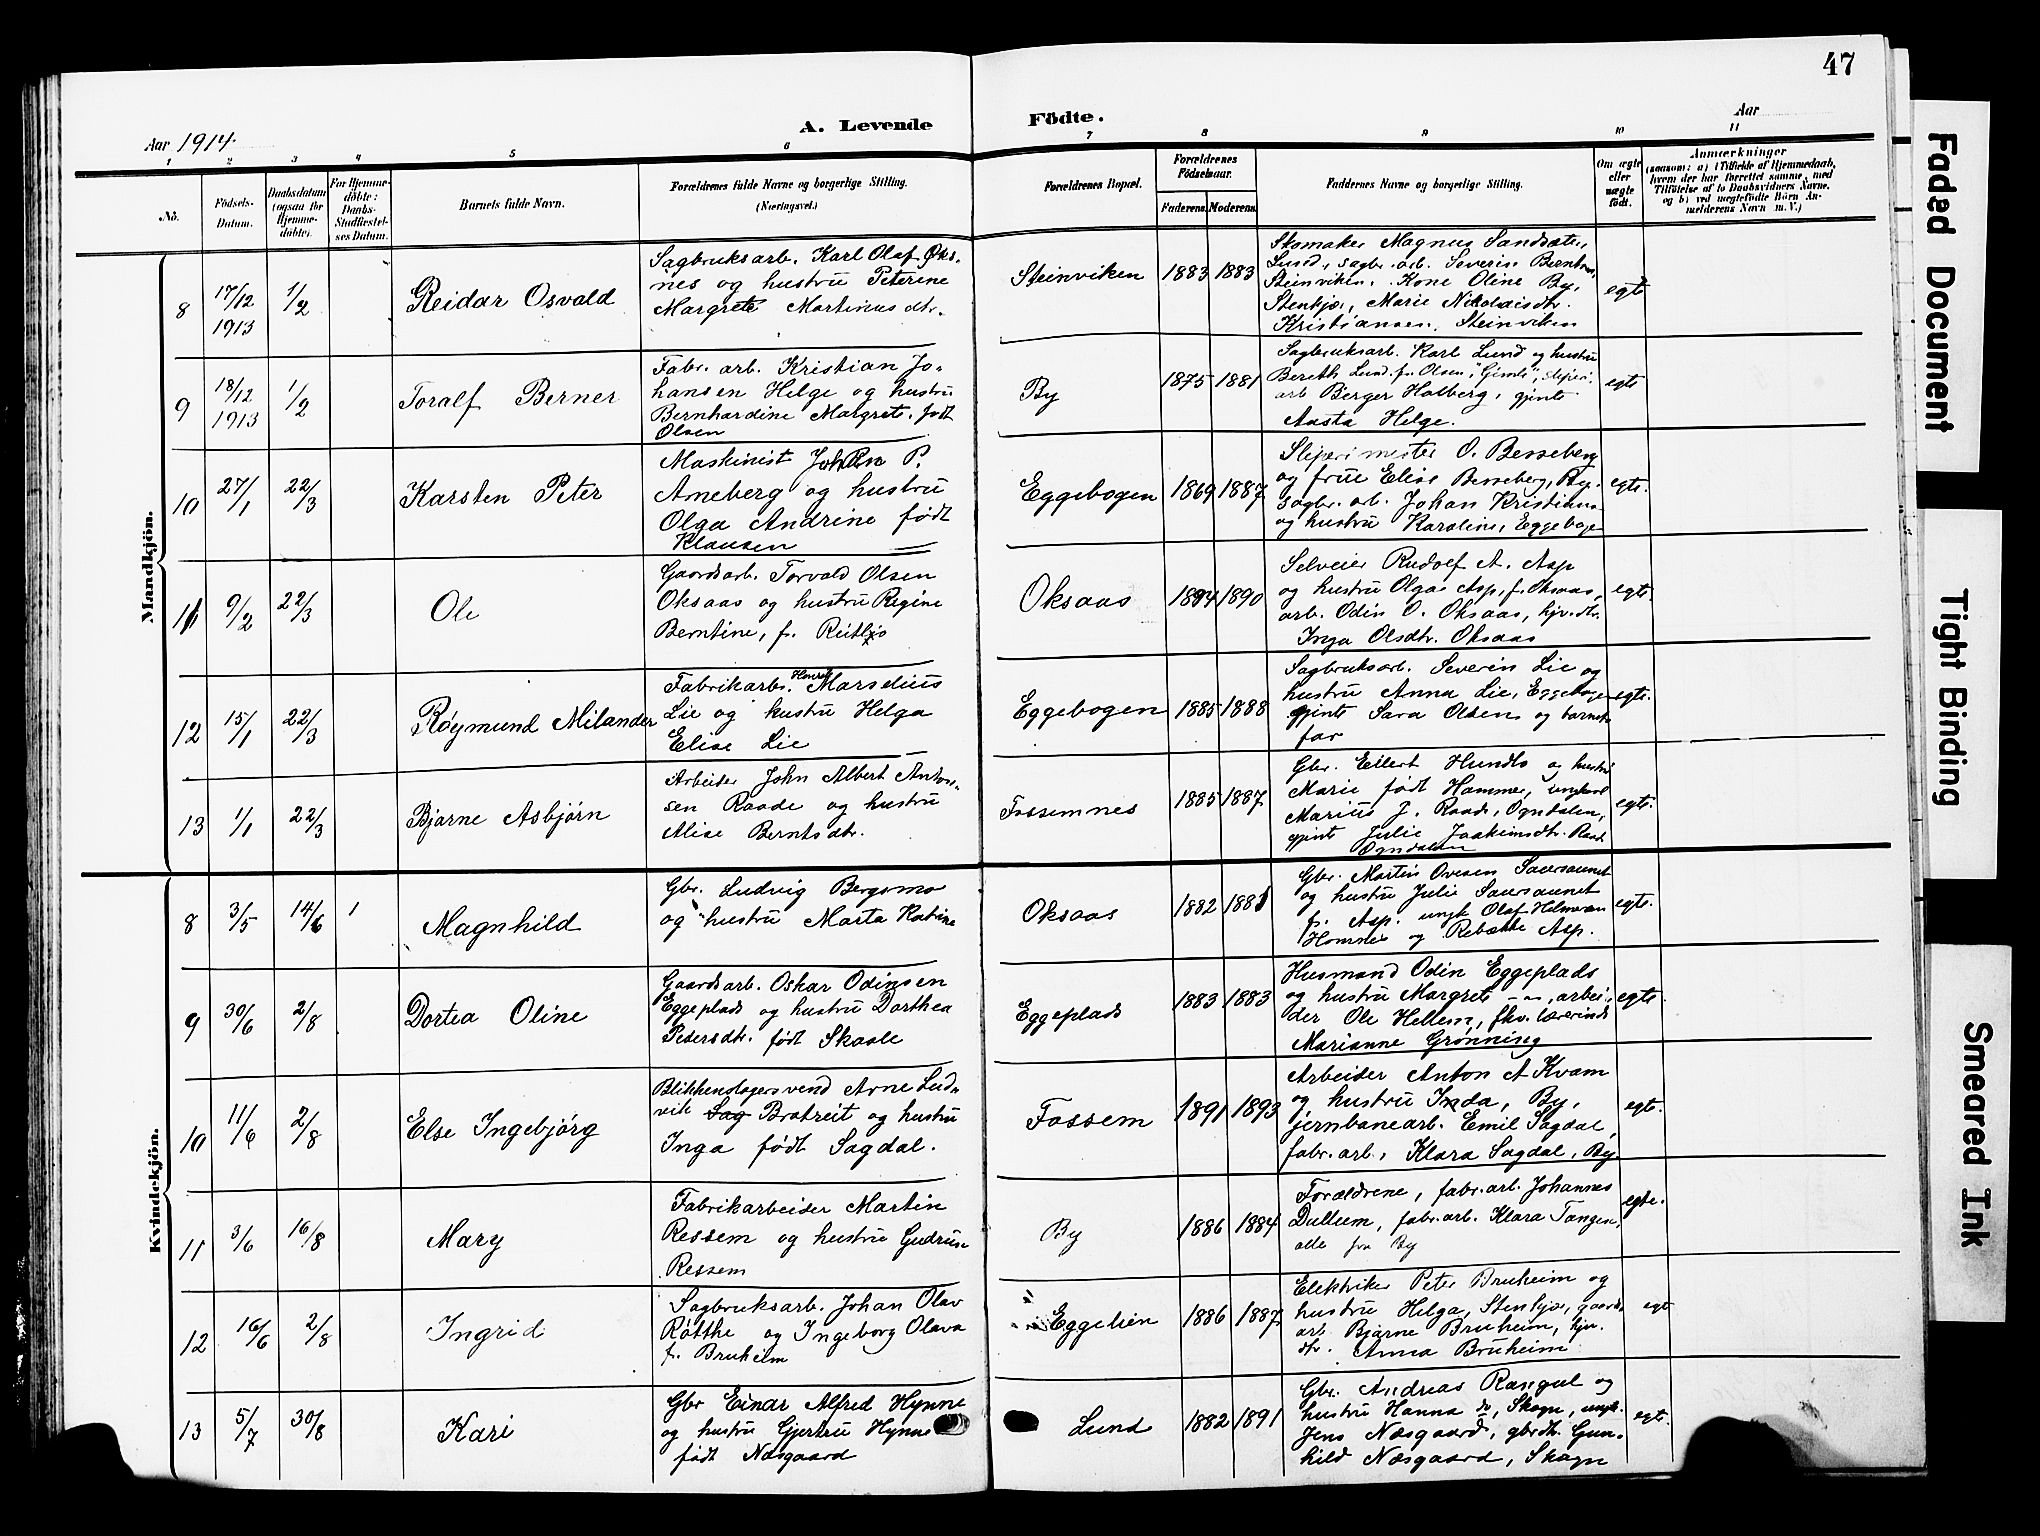 47
A. Levende Födte.
Aar 1914.
Aar
1 2 3 4 5 6 7 8 9 10 11
No.
Födsels-Datum.
Daabsdatum (ogsaa for Hjemme-döbte).
For Hjemme-döbte: Daabs-Stadfæstel-ses Datum.
Barnets fulde Navn.
Forældrenes fulde Navne og borgerlige Stilling.
(Næringsvei.)
Forældrenes Bopæl.
Forældrenes Födselsaar.
Faderens. Moderens.
Faddernes Navne og borgerlige Stilling.
Om ægte eller uægte født.
Anmærkninger
(saasom: a) i Tilfælde af Hjemmedaab,
hvem der har forrettet samme, med
Tilföielse af to Daabsvidners Navne,
og b) ved uægtefödte Börn An-
melderens Navn m. V.)
Mandkjön.
8 17/12 1913 1/2 Reidar Osvald
Sagbruksarb. Karl Olaf Øks-
nes og hustru Peterine
Margrete Martinus dtr.
Steinviken 1883 1883
Skomaker Magnus Sandsæter,
Lund, sagbr. arb. Severin Berntsen,
Steinviken, Kone Oline By,
Stenkjær, Marie Nikolaisdtr.
Kristiansen, Steinviken
egte
9 18/12 1913 1/2 Toralf Berner
Fabr. arb. Kristian Jo-
hansen Helge og hustru
Bernhardine Margrete, født
Olsen
By 1875 1881
Sagbruksarb. Karl Lund og hustru
Bereth Lund f. Olsen, "Gimle", sliperi.
arb Berger Holberg, gjente
Aasta Helge.
egte
10 27/1 22/3 Karsten Peter
Maskinist Johan P.
Arneberg og hustru
Olga Andrine født
Klausen
Eggebogen 1869 1887
Sliperimester O. Besseberg
og frue Elise Besseberg, By.
sagbr. arb. Johan Kristians
og hustru Karoline, Eggebogen
egte.
11 9/2 22/3 Ole
Gaardsarb. Torvald Olsen
Oksaas og hustru Regine
Berntine, f. Reitlo
Oksaas 1894 1890
Selveier Rudolf A. Asp
og hustru Olga Asp, f. Oksaas,
arb. Odin O. Oksaas, hjv. dtr.
Inga Olsdtr. Oksaas
egte
12 15/1 22/3 Røymund Milander
Fabrikarb. Marselius
Lie og hustru Helga
Elise Lie
Eggebogen 1885 1888
Sagbruksarb. Severin Lie og
hustru Anna Lie, Eggebogen
gjente Sara Olsen og barnets
far
egte.
13 1/1 22/3 Bjarne Asbjørn
Arbeider John Albert Anton-
sen Raade og hustru
Alise Berntsdtr.
Fossemnes 1885 1887
Gbr. Eilert Hundlo og hustru
Marie født Hammer, ungkarl
Marius J. Raade, Ogndalen,
gjente Julie Joakimsdtr. Raade
Ogndalen
egte.
Kvindekjön.
8 3/5 14/6 1 Magnhild
Gbr. Ludvig Bergsmo
og hustru Marta Katrine
Oksaas 1882 1881
Gbr. Martin Ovesen Saursaunet
og hustru Julie Saursaunet
f. Asp. ungk Olaf Hilmersen
Hammer og Rebekke Asp.
egte.
9 30/6 2/8 Dortea Oline
Gaardsarb. Oskar Odinsen
Eggeplads og hustru Dorthea
Petersdtr. født Skaale
Eggeplads 1883 1883
Husmand Odin Eggeplads
og hustru Margrete — " —, arbei-
der Ole Hellem, fhv. lærerinde
Marianne Grønning
egte
10 11/6 2/8 Else Ingebjørg
Blikkenslagersvend Arne Lud-
vik Sag Bratreit og hustru
Inga født Sagdal.
Fossem 1891 1893
Arbeider Anton A Kvam
og hustru Inda, By,
jernbanearb. Emil Sagdal,
fabr. arb., Klara Sagdal, By.
egte.
11 3/6 16/8 Mary
Fabrikarbeider Martin
Ressem og hustru Gudrun
Ressem
By 1886 1884
Forældrene, fabr. arb. Johannes
Dullum, fabr. arb. Klara Tangen,
alle fra By
egte.
12 16/6 2/8 Ingrid
Sagbruksarb. Johan Olav
Røtthe og Ingeborg Olava
f. Bruheim
Eggelien 1886 1887
Elektriker Peter Bruheim og
hustru Helga, Stenkjær, gaards.
arb Bjarne Bruheim, hjv.
dtr. Anna Bruheim
egt
13 5/7 30/8 Kari
Gbr Einar Alfred Hynne
og hustru Gjertru Hynne
født Næsgaard
Lund 1882 1891
Gbr. Andreas Rangul og
hustru Hanna do, Skogn, ungk.
Jens Næsgaard, gbrdtr. Gun-
hild Næsgaard, Skogn
egt.
Faded Document
Tight Binding
Smeared Ink